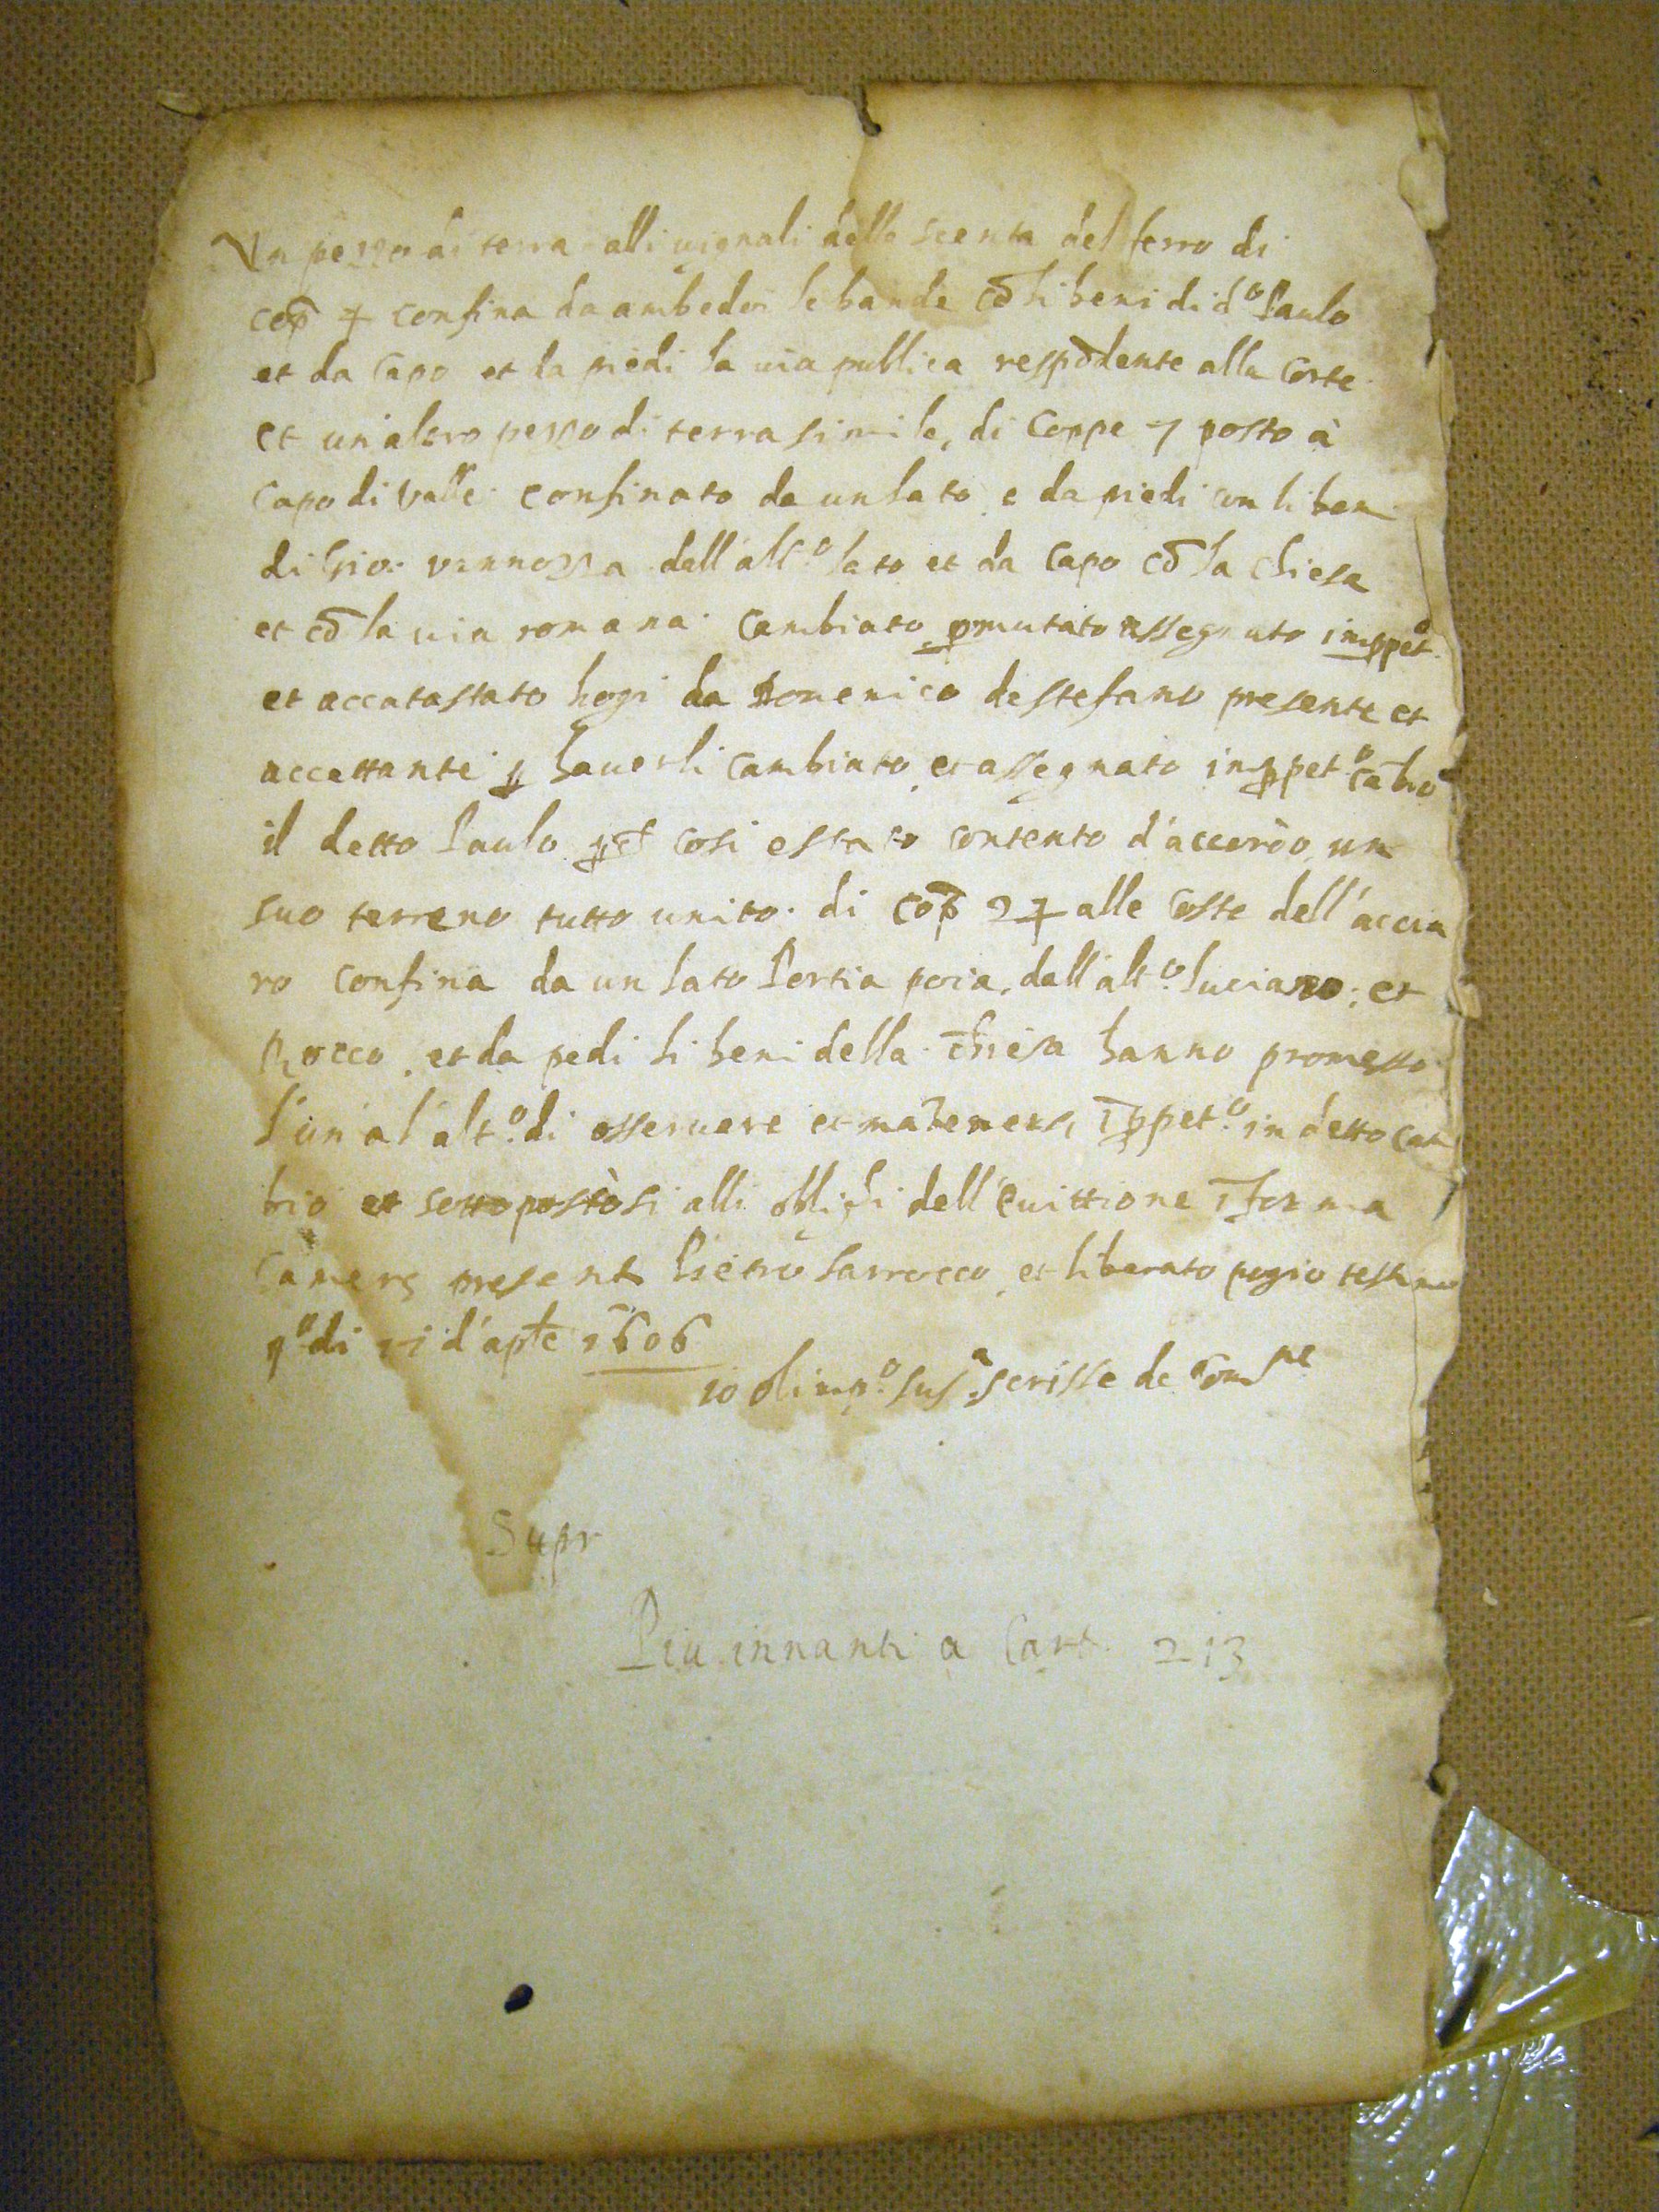 Un pezzo di terra alli uignali della scenta del ferro di
cop̄ 7 confina da ambedoi le bande cō li beni di d.º Paulo
et da capo et da piedi la uia publica respōdente alla Corte
et un'altro pezzo di terra simile, di Coppe 7 posto à
Capo di Valle confinato da un lato e da piedi con li beni
di Gio: vannozza dall'alt.º lato et da capo cō la chiesa
et cō la uia romana. Cambiato ꝑmutato assegnato in ꝑpet.º
et accatastato hogi da Domenico de stefano presente et
accettante ꝑ hauerli cambiato et assegnato in ꝑpet.º cābio
il detto Paulo cosi estato contento d'accordo un
suo terreno tutto unito. di cop̄ 27 alle coste dell'accia
ro confina da un lato Portia poia, dall'alt.º luciano: et
Rocco. et da pedi li beni della chiesa hanno promesso
l'un al alt.º di osseruare et mātenersi ī ꝑpet.º in detto cam
bio et sottopostosi alli oblighi dell'euittione ī forma
Camere presenti Pietro Sarrocco et liberato pogio testimo
q.º di d'aple 1606
io olimp.º sus.ª scrisse de
Supr
Piu innanti a Cart. 213